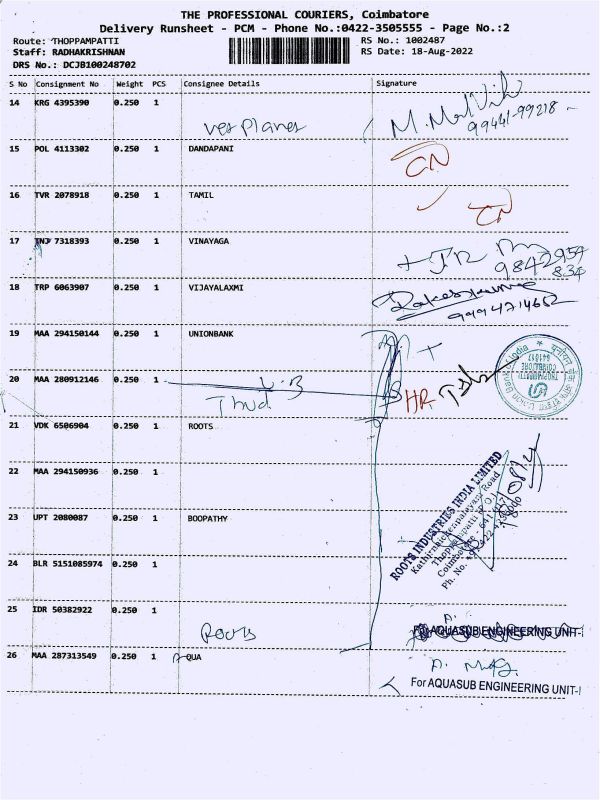 THE PROFESSIONAL COURIERS, Coimbatore
Delivery Runsheet - PCM - Phone No.:0422-3505555 - Page No.:2
Route: THOPPAMPATTI
Staff: RADHAKRISHNAN
DRS No.: DCJB100248702
RS No.: 1002487
RS Date: 18-Aug-2022
S No Consignment No Weight PCS Consignee Details Signature
14 KRG 4395390 0.250 1
99441-99218
15 POL 4113302 0.250 1 DANDAPANI
16 TVR 2078918 0.250 1 TAMIL
17 TNJ 7318393 0.250 1 VINAYAGA
9842954
834
18 TRP 6063907 0.250 1 VIJAYALAXMI
9994714662
19 MAA 294150144 0.250 1 UNIONBANK
20 MAA 280912146 0.250 1
HR
21 VDK 6506904 0.250 1 ROOTS
22 MAA 294150936 0.250 1
ROOTS INDUSTRIES INDIA LIMITED
Kathirnaickenpalayam Road
Thoppampatti P.O.
Coimbatore - 641 017
23 UPT 2080087 0.250 1 BOOPATHY
24 BLR 5151085974 0.250 1
25 IDR 50382922 0.250 1
Roots
For AQUASUB ENGINEERING UNIT-I
26 MAA 287313549 0.250 1 AQUA
For AQUASUB ENGINEERING UNIT-I